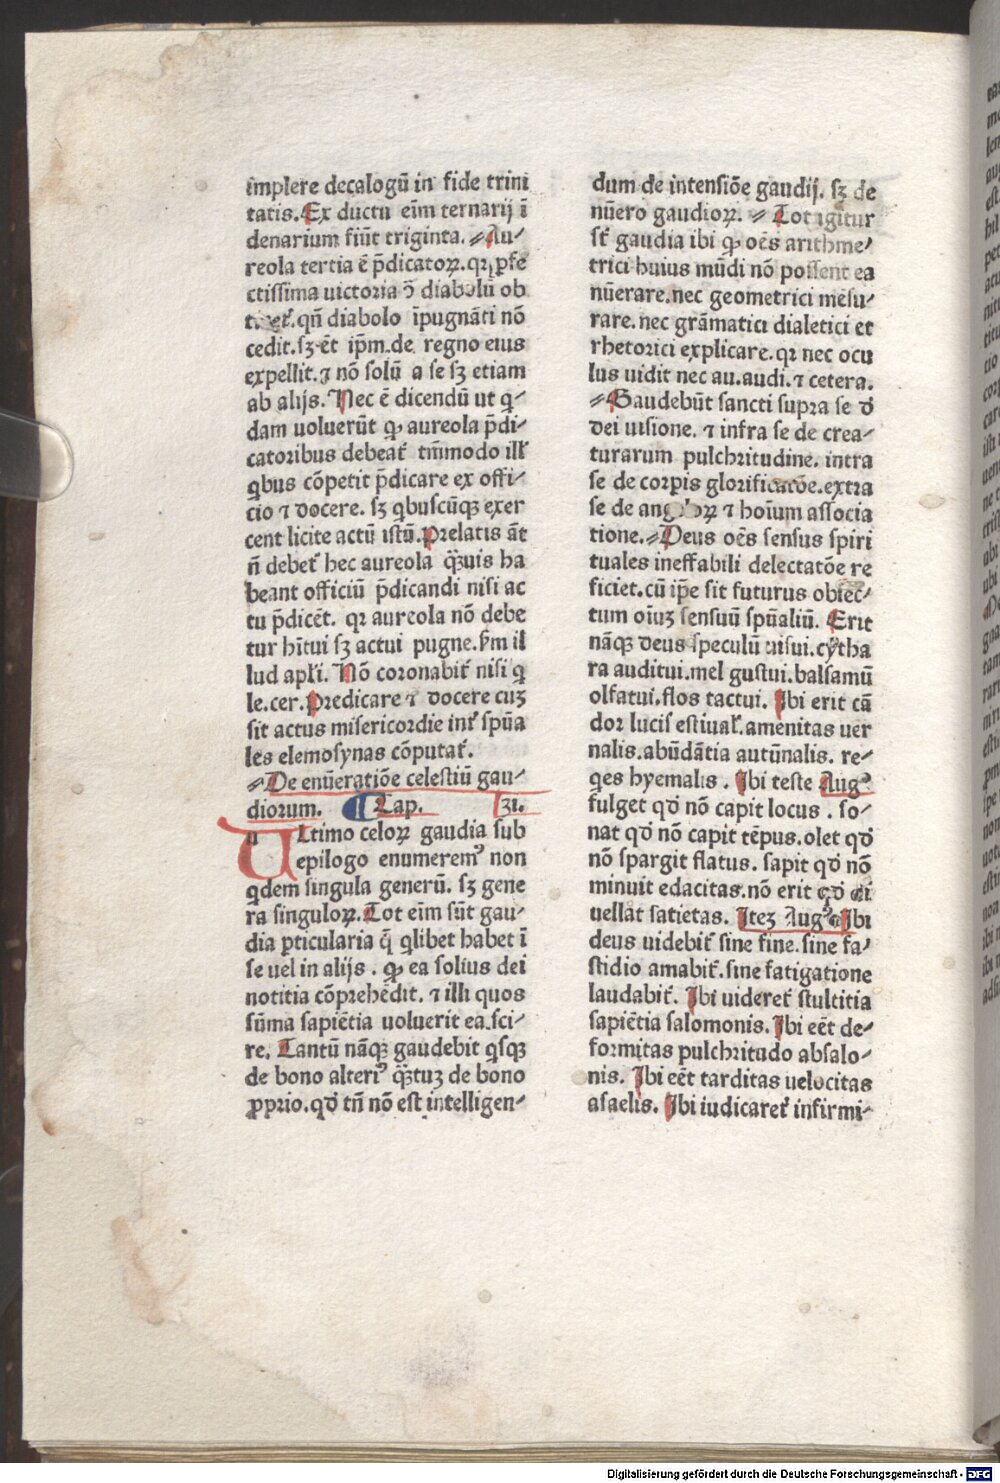 implere decalogū in fide trini
tatis. Ex ductu eīm ternarij ī
denarium fiūt triginta. Au⸗
reola tertia ē p̄dicatoꝝ. qꝛ ꝑfe
ctissima uictoria ɔ̄ diabolū ob
qn̄ diabolo īpugnāti nō
cedit. sꝫ ēt ip̄m. de regno eius
expellit. ⁊ nō solū a se sꝫ etiam
ab alijs. Nec ē dicendū ut q⸗
dam uoluerūt ꝙ aureola p̄di⸗
catoribus debeat᷑ tm̄modo ill᷑
qbus cōpetit p̄dicare ex offi⸗
cio ⁊ docere. sꝫ qbuscūqꝫ exer
cent licite actū istū. Prelatis āt
n̄ debet᷑ hec aureola q̄uis ha
beant officiū p̄dicandi nisi ac
tu p̄dicēt. qꝛ aureola nō debe
tur hītui sꝫ actui pugne. ẜm il
lud apl̄i. Nō coronabit᷑ nisi q
le. cer. Predicare ⁊ docere cuꝫ
sit actus misericordie int᷑ spūa
les elemosynas cōputat᷑.
De enūeratiōe celestiū gau⸗
diorum. Cap. 31.
Ultimo celoꝝ gaudia sub
epilogo enumerem᷒ non
qdem singula generū. sꝫ gene
ra singuloꝝ. Tot eīm sūt gau⸗
dia ꝑticularia q̄ qlibet habet ī
se uel in alijs. ꝙ ea solius dei
notitia cōprehēdit. ⁊ illi quos
sūma sapiētia uoluerit ea. sci⸗
re. Tantū nāqꝫ gaudebit qsqꝫ
de bono alteri᷒ q̄tuꝫ de bono
ꝓprio. qđ tn̄ nō est intelligen⸗
dum de intensiōe gaudij. sꝫ de
nūero gaudioꝝ. Tot igitur
st᷑ gaudia ibi ꝙ oēs arithme⸗
trici huius mūdi nō possent ea
nūerare. nec geometrici mēsu⸗
rare. nec grāmatici dialetici et
rhetorici explicare. qꝛ nec ocu
lus uidit nec au. audi. ⁊ cetera.
Gaudebūt sancti supra se đ
dei uisione. ⁊ infra se de crea⸗
turarum pulchritudine. intra
se de corpis glorificatōe. extra
se de angeloꝝ ⁊ hoīum associa
tione. Deus oēs sensus spiri
tuales ineffabili delectatōe re
ficiet. cū ip̄e sit futurus obiec⸗
tum oīuꝫ sensuū spūaliū. Erit
nāqꝫ deus speculū uisui. cytha
ra auditui. mel gustui. balsamū
olfatui. flos tactui. Ibi erit cā
dor lucis estiual᷑. amenitas uer
nalis. abūdātia autūnalis. re⸗
qes hyemalis. Ibi teste Aug᷒.
fulget qđ nō capit locus. so⸗
nat qđ nō capit tēpus. olet qđ
nō spargit flatus. sapit qđ nō
minuit edacitas. nō erit qđ ei
uellat satietas. Iteꝫ Aug᷒ Ibi
deus uidebit᷑ sine fine. sine fa⸗
stidio amabit᷑. sine fatigatione
laudabit᷑. Ibi uideret᷑ stultitia
sapiētia salomonis. Ibi eēt de⸗
formitas pulchritudo absalo⸗
nis. Ibi eēt tarditas uelocitas
asaelis. Ibi iudicaret᷑ infirmi⸗
Digitalisierung gefördert durch die Deutsche Forschungsgemeinschaft - DFG